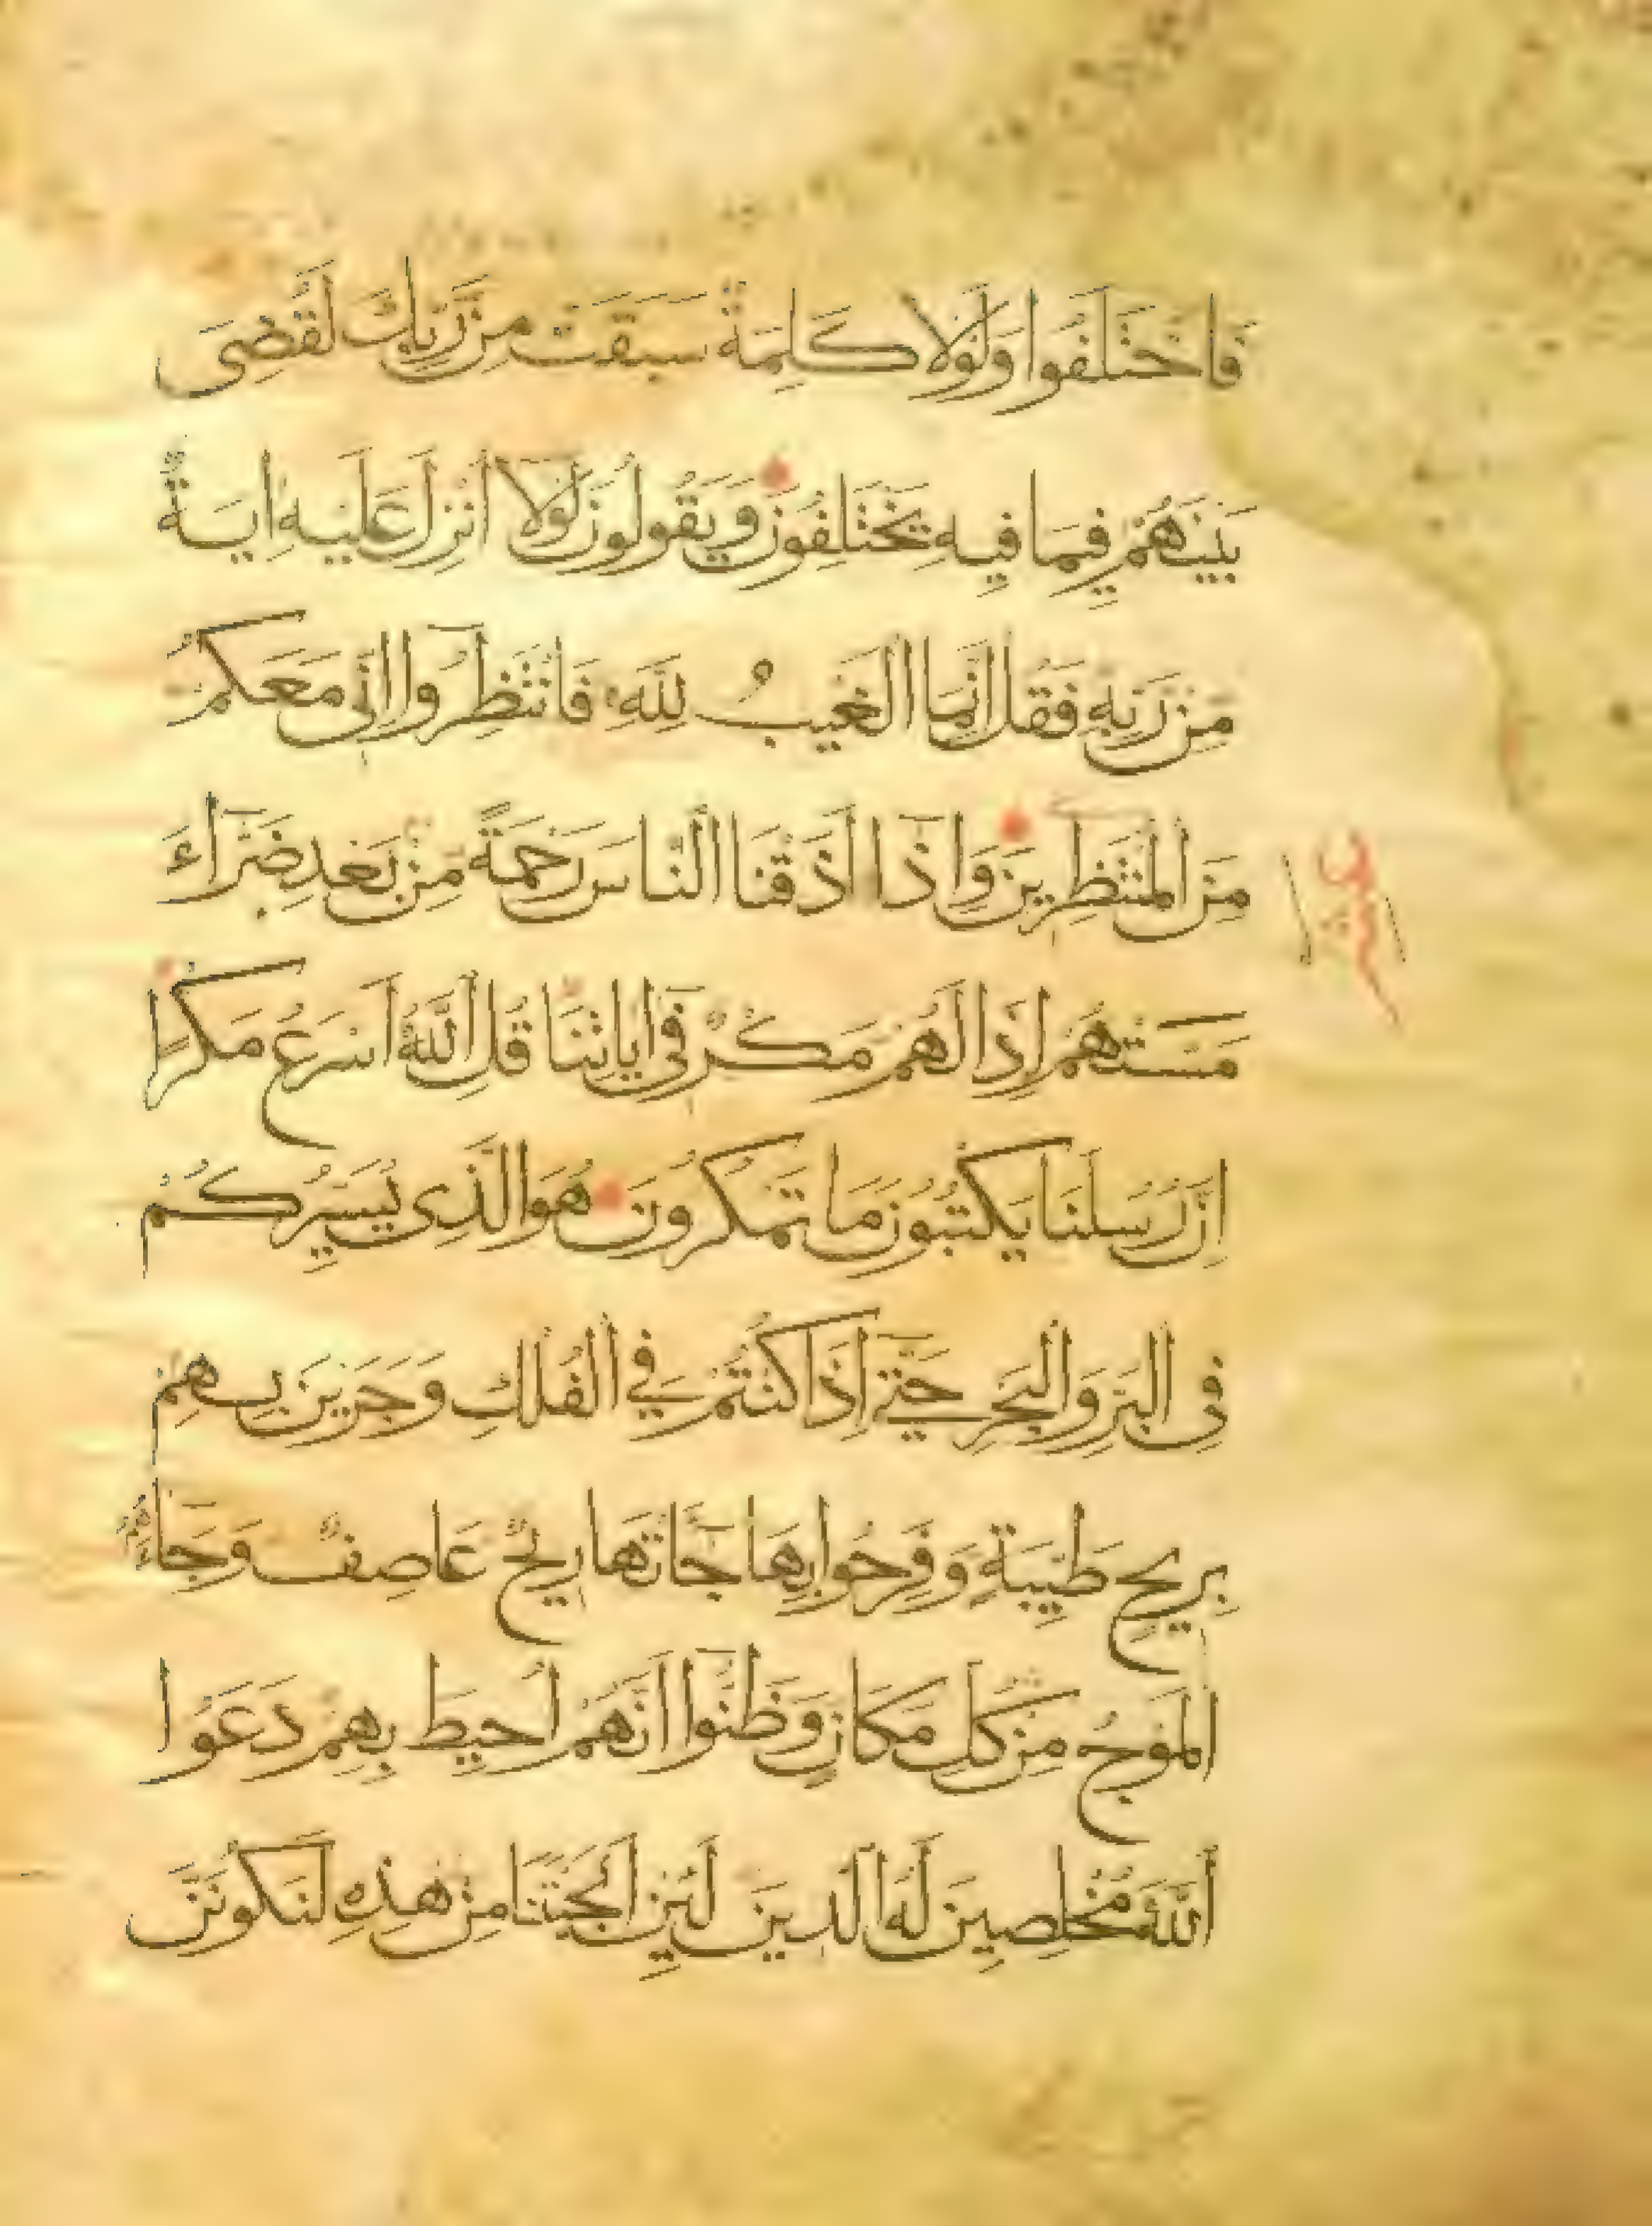 فَاخْتَلَفُوا وَلَوْلَا كَلِمَةٌ سَبَقَتْ مِنْ رَبِّكَ لَقُضِىَ
بَيْنَهُمْ فِيمَا فِيهِ يَخْتَلِفُونَ وَيَقُولُونَ لَوْلَا أُنْزِلَ عَلَيْهِ اٰيَةٌ
مِنْ رَبِّهِ فَقُلْ اِنَّمَا الْغَيْبُ لِلّٰهِ فَانْتَظِرُوا اِنِّى مَعَكُمْ
مِنَ الْمُنْتَظِرِينَ وَاِذَا اَذَقْنَا النَّاسَ رَحْمَةً مِنْ بَعْدِ ضَرَّاءَ
مَسَّتْهُمْ اِذَا لَهُمْ مَكْرٌ فِى اٰيَاتِنَا قُلِ اللّٰهُ اَسْرَعُ مَكْرًا
اِنَّ رُسُلَنَا يَكْتُبُونَ مَا تَمْكُرُونَ هُوَ الَّذِى يُسَيِّرُكُمْ
فِى الْبَرِّ وَالْبَحْرِ حَتّٰى اِذَا كُنْتُمْ فِي الْفُلْكِ وَجَرَيْنَ بِهِمْ
بِرِيحٍ طَيِّبَةٍ وَفَرِحُوا بِهَا جَاءَتْهَا رِيحٌ عَاصِفٌ وَجَاءَهُمُ
الْمَوْجُ مِنْ كُلِّ مَكَانٍ وَظَنُّوا اَنَّهُمْ اُحِيطَ بِهِمْ دَعَوُا
اللّٰهَ مُخْلِصِينَ لَهُ الدِّينَ لَئِنْ اَنْجَيْتَنَا مِنْ هٰذِهِ لَنَكُونَنَّ